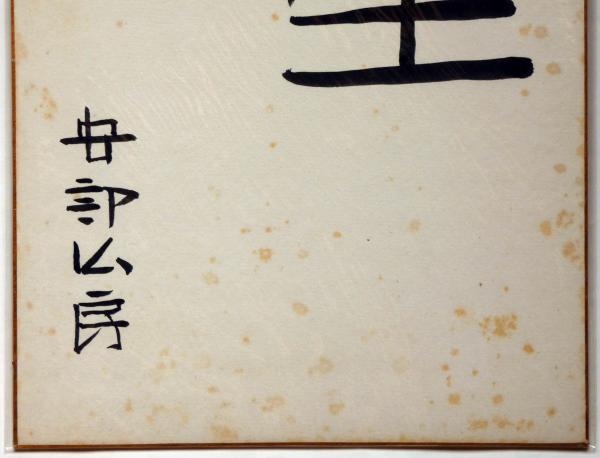 安部公房